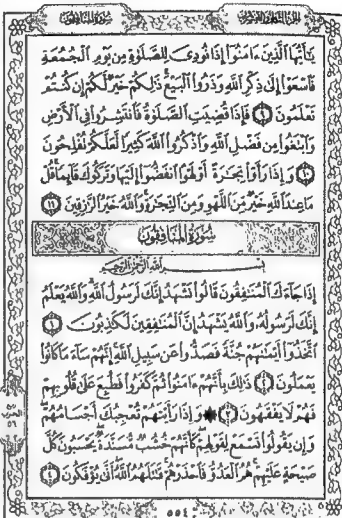 سُورَةُ المُنَافِقُونَ
يَٰٓأَيُّهَا ٱلَّذِينَ ءَامَنُوٓا۟ إِذَا نُودِىَ لِلصَّلَوٰةِ مِن يَوْمِ ٱلْجُمُعَةِ
فَٱسْعَوْا۟ إِلَىٰ ذِكْرِ ٱللَّهِ وَذَرُوا۟ ٱلْبَيْعَ ذَٰلِكُمْ خَيْرٌ لَّكُمْ إِن كُنتُمْ
تَعْلَمُونَ ٩ فَإِذَا قُضِيَتِ ٱلصَّلَوٰةُ فَٱنتَشِرُوا۟ فِى ٱلْأَرْضِ
وَٱبْتَغُوا۟ مِن فَضْلِ ٱللَّهِ وَٱذْكُرُوا۟ ٱللَّهَ كَثِيرًا لَّعَلَّكُمْ تُفْلِحُونَ
١٠ وَإِذَا رَأَوْا۟ تِجَٰرَةً أَوْ لَهْوًا ٱنفَضُّوٓا۟ إِلَيْهَا وَتَرَكُوكَ قَآئِمًا قُلْ
مَا عِندَ ٱللَّهِ خَيْرٌ مِّنَ ٱللَّهْوِ وَمِنَ ٱلتِّجَٰرَةِ وَٱللَّهُ خَيْرُ ٱلرَّٰزِقِينَ ١١
سُورَةُ المُنَافِقُونَ
بِسْمِ ٱللَّهِ ٱلرَّحْمَٰنِ ٱلرَّحِيمِ
إِذَا جَآءَكَ ٱلْمُنَٰفِقُونَ قَالُوا۟ نَشْهَدُ إِنَّكَ لَرَسُولُ ٱللَّهِ وَٱللَّهُ يَعْلَمُ
إِنَّكَ لَرَسُولُهُۥ وَٱللَّهُ يَشْهَدُ إِنَّ ٱلْمُنَٰفِقِينَ لَكَٰذِبُونَ ١
ٱتَّخَذُوٓا۟ أَيْمَٰنَهُمْ جُنَّةً فَصَدُّوا۟ عَن سَبِيلِ ٱللَّهِ إِنَّهُمْ سَآءَ مَا كَانُوا۟
يَعْمَلُونَ ٢ ذَٰلِكَ بِأَنَّهُمْ ءَامَنُوا۟ ثُمَّ كَفَرُوا۟ فَطُبِعَ عَلَىٰ قُلُوبِهِمْ
فَهُمْ لَا يَفْقَهُونَ ٣ ۞ وَإِذَا رَأَيْتَهُمْ تُعْجِبُكَ أَجْسَامُهُمْ
وَإِن يَقُولُوا۟ تَسْمَعْ لِقَوْلِهِمْ كَأَنَّهُمْ خُشُبٌ مُّسَنَّدَةٌ يَحْسَبُونَ كُلَّ
صَيْحَةٍ عَلَيْهِمْ هُمُ ٱلْعَدُوُّ فَٱحْذَرْهُمْ قَٰتَلَهُمُ ٱللَّهُ أَنَّىٰ يُؤْفَكُونَ ٤
٥٥٤